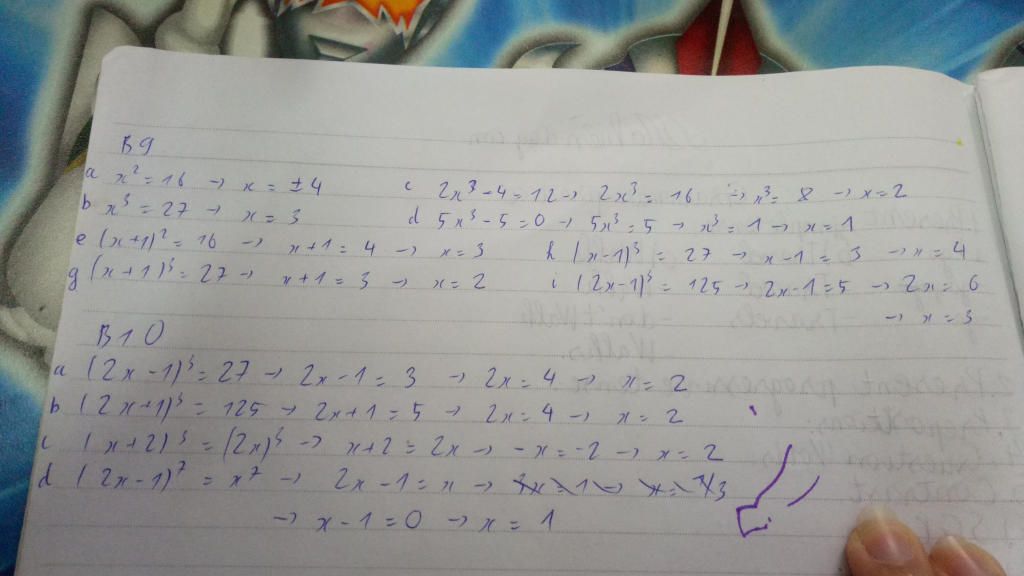 B9
a x² = 16 → x = ±4 c 2x³ - 4 = 12 → 2x³ = 16 → x³ = 8 → x = 2
b x³ = 27 → x = 3 d 5x³ - 5 = 0 → 5x³ = 5 → x³ = 1 → x = 1
e (x+1)² = 16 → x+1 = 4 → x = 3 h (x-1)³ = 27 → x-1 = 3 → x = 4
g (x+1)³ = 27 → x+1 = 3 → x = 2 i (2x-1)³ = 125 → 2x-1 = 5 → 2x = 6
→ x = 3
B10
a (2x-1)³ = 27 → 2x-1 = 3 → 2x = 4 → x = 2
b (2x+1)³ = 125 → 2x+1 = 5 → 2x = 4 → x = 2
c (x+2)³ = (2x)³ → x+2 = 2x → -x = -2 → x = 2
d (2x-1)⁷ = x⁷ → 2x-1 = x →
→ x-1 = 0 → x = 1